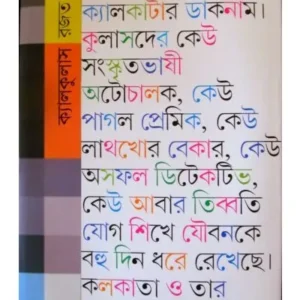 ক্যালকাটার ডাকনাম।
কুলাসদের কেউ
সংস্কৃতভাষী
অটোচালক, কেউ
পাগল প্রেমিক, কেউ
লাথখোর বেকার, কেউ
অসফল ডিটেকটিভ,
কেউ আবার তিব্বতি
যোগ শিখে যৌবনকে
বহু দিন ধরে রেখেছে।
কলকাতা ও তার
ক্যালকুলাস
রজত